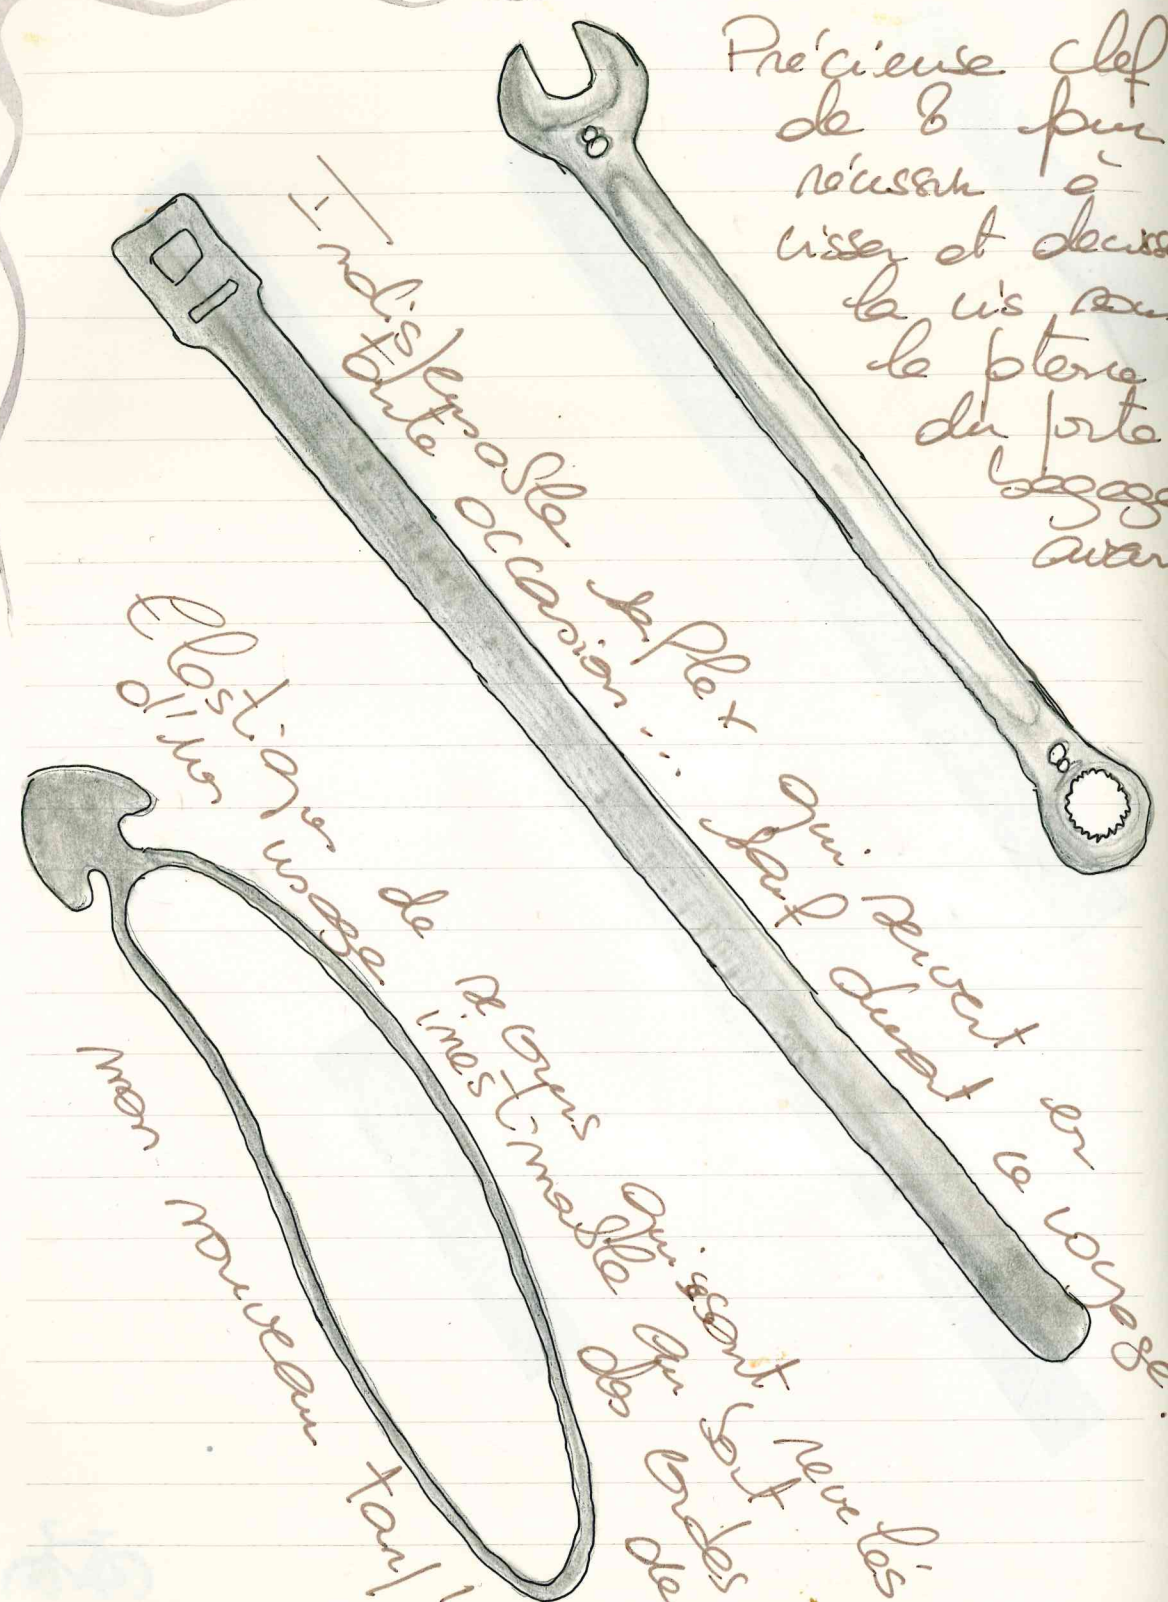 Précieuse clef
de 8 pour
réussir à
visser et deviss
la vis sous
la potence
du porte
bagage
avan
8
8
Indispensable saflex qui servent en
toute occasion... sauf durant ce voyage.
Elastiques de secours qui se sont revelés
d'un usage inestimable qui sont des cordes de
mon nouveau tarp!